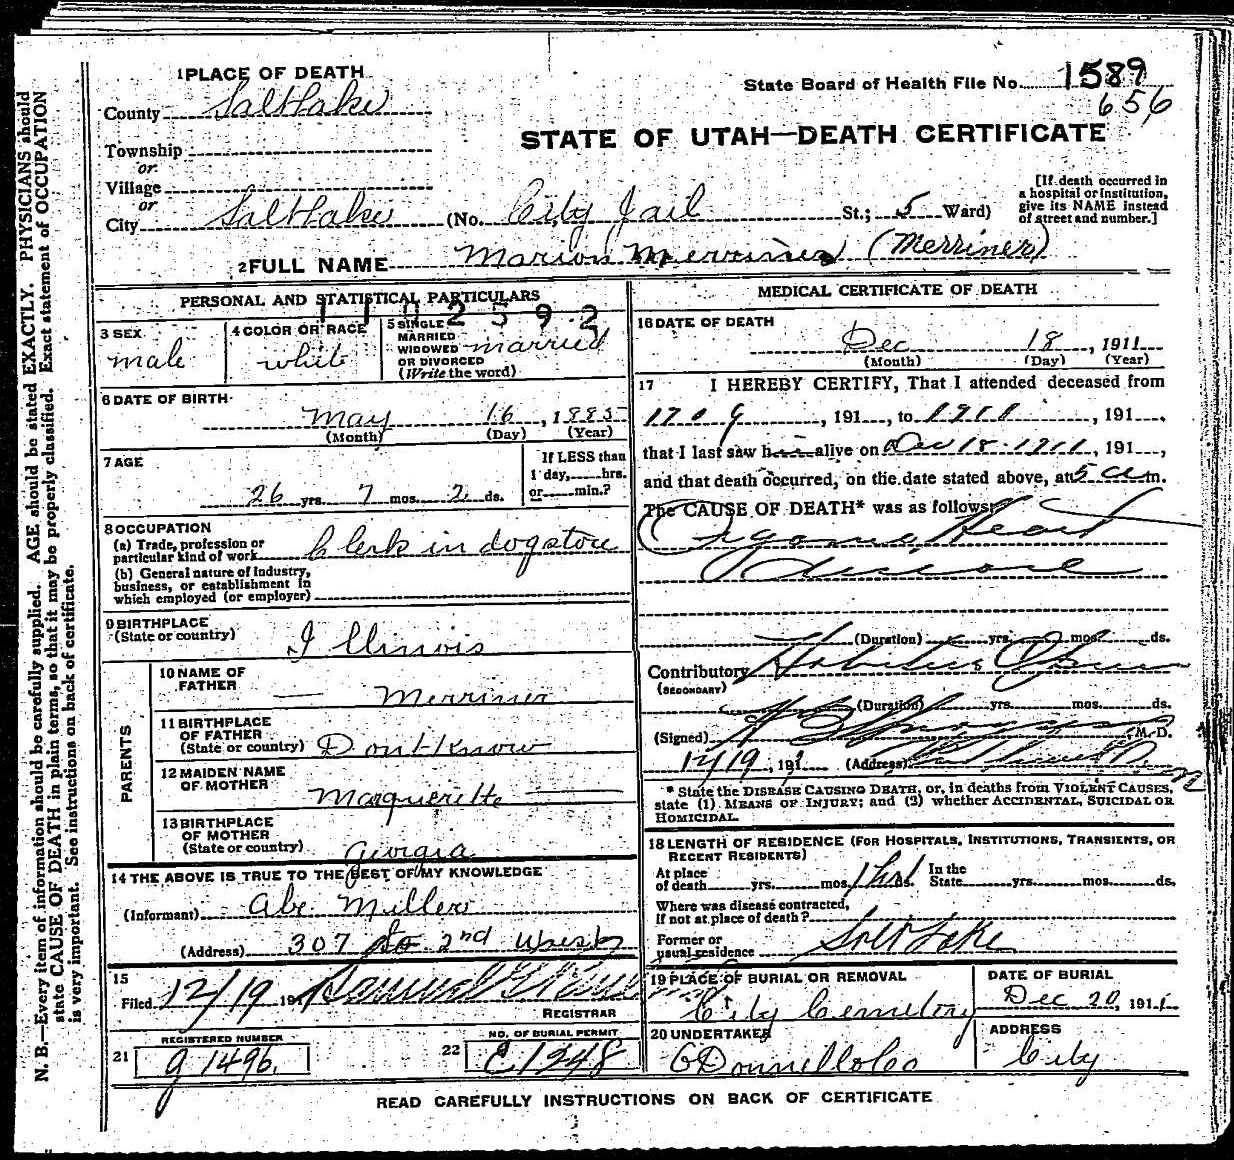 1 PLACE OF DEATH
County Salt Lake
Township
or
Village
or
City Salt Lake (No. City Jail St.; 5 Ward)
State Board of Health File No. 1589
656
STATE OF UTAH—DEATH CERTIFICATE
[If death occurred in a hospital or institution, give its NAME instead of street and number.]
2 FULL NAME Marion Merriner (Merriner)
PERSONAL AND STATISTICAL PARTICULARS
1102592
3 SEX
male
4 COLOR OR RACE
white
5 SINGLE
MARRIED
WIDOWED
OR DIVORCED
(Write the word)
married
6 DATE OF BIRTH
May 16, 1885
(Month) (Day) (Year)
7 AGE
26 yrs. 7 mos. 2 ds.
If LESS than
1 day, hrs.
or min.?
8 OCCUPATION
(a) Trade, profession or
particular kind of work Clerk in dogstore
(b) General nature of industry,
business, or establishment in
which employed (or employer)
9 BIRTHPLACE
(State or country) Illinois
PARENTS
10 NAME OF
FATHER — Merriner
11 BIRTHPLACE
OF FATHER
(State or country) Dont Know
12 MAIDEN NAME
OF MOTHER Marguerette —
13 BIRTHPLACE
OF MOTHER
(State or country) Georgia
14 THE ABOVE IS TRUE TO THE BEST OF MY KNOWLEDGE
(Informant) Abe Miller
(Address) 307 So 2nd West
15
Filed 12/19 191 Samuel G
REGISTRAR
REGISTERED NUMBER
21 g 1496
NO. OF BURIAL PERMIT
22 C1248
MEDICAL CERTIFICATE OF DEATH
16 DATE OF DEATH
Dec 18, 1911
(Month) (Day) (Year)
17 I HEREBY CERTIFY, That I attended deceased from
, 191 , to 1911, 191 ,
that I last saw h alive on Dec 18 - 1911, 191 ,
and that death occurred, on the date stated above, at 5 a m.
The CAUSE OF DEATH* was as follows:
Organic Heart
disease
(Duration) yrs. mos. ds.
Contributory Habitus Opium
(SECONDARY)
(Duration) yrs. mos. ds.
(Signed) M. D.
12/19, 191 (Address)
* State the DISEASE CAUSING DEATH, or, in deaths from VIOLENT CAUSES,
state (1) MEANS OF INJURY; and (2) whether ACCIDENTAL, SUICIDAL OR
HOMICIDAL.
18 LENGTH OF RESIDENCE (FOR HOSPITALS, INSTITUTIONS, TRANSIENTS, OR
RECENT RESIDENTS)
At place
of death yrs. mos. ds. In the
State yrs. mos. ds.
Where was disease contracted,
If not at place of death?
Former or
usual residence Salt Lake
19 PLACE OF BURIAL OR REMOVAL
City Cemetery
DATE OF BURIAL
Dec 20, 1911
20 UNDERTAKER
O'Donnell & Co
ADDRESS
City
READ CAREFULLY INSTRUCTIONS ON BACK OF CERTIFICATE
N. B.—Every item of information should be carefully supplied. AGE should be stated EXACTLY. PHYSICIANS should
state CAUSE OF DEATH in plain terms, so that it may be properly classified. Exact statement of OCCUPATION
is very important. See instructions on back of certificate.